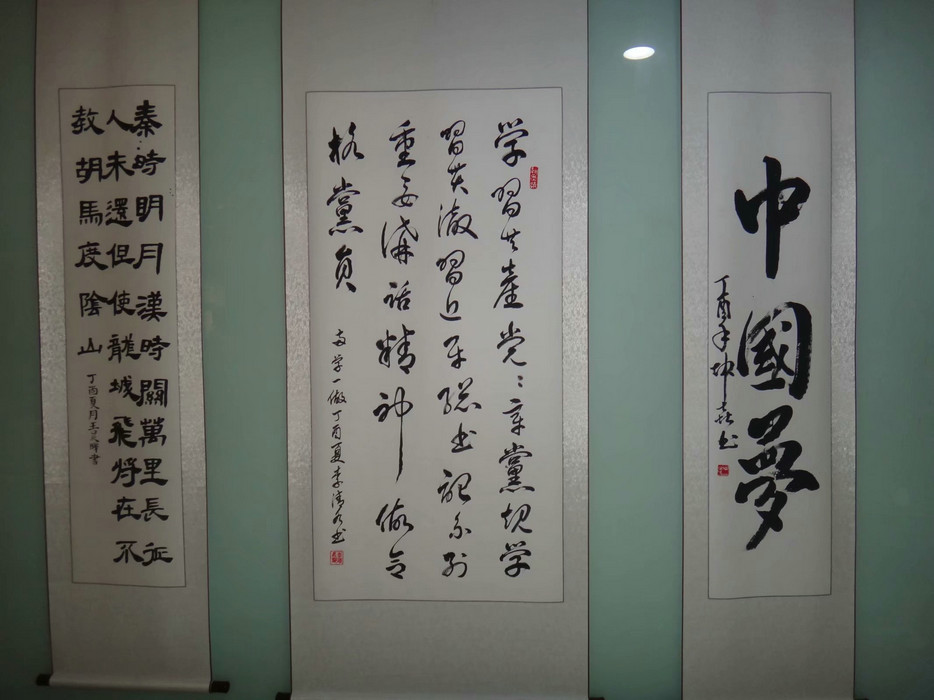 秦時明月漢時關萬里長征
人未還但使龍城飛將在不
教胡馬度陰山
丁酉夏月王 書
学習共產党〻章黨规学
習贯澈習近平總书記系列
重要講话精神做合
格黨员
两学一做丁酉夏李 书
中國夢
丁酉年坤 书